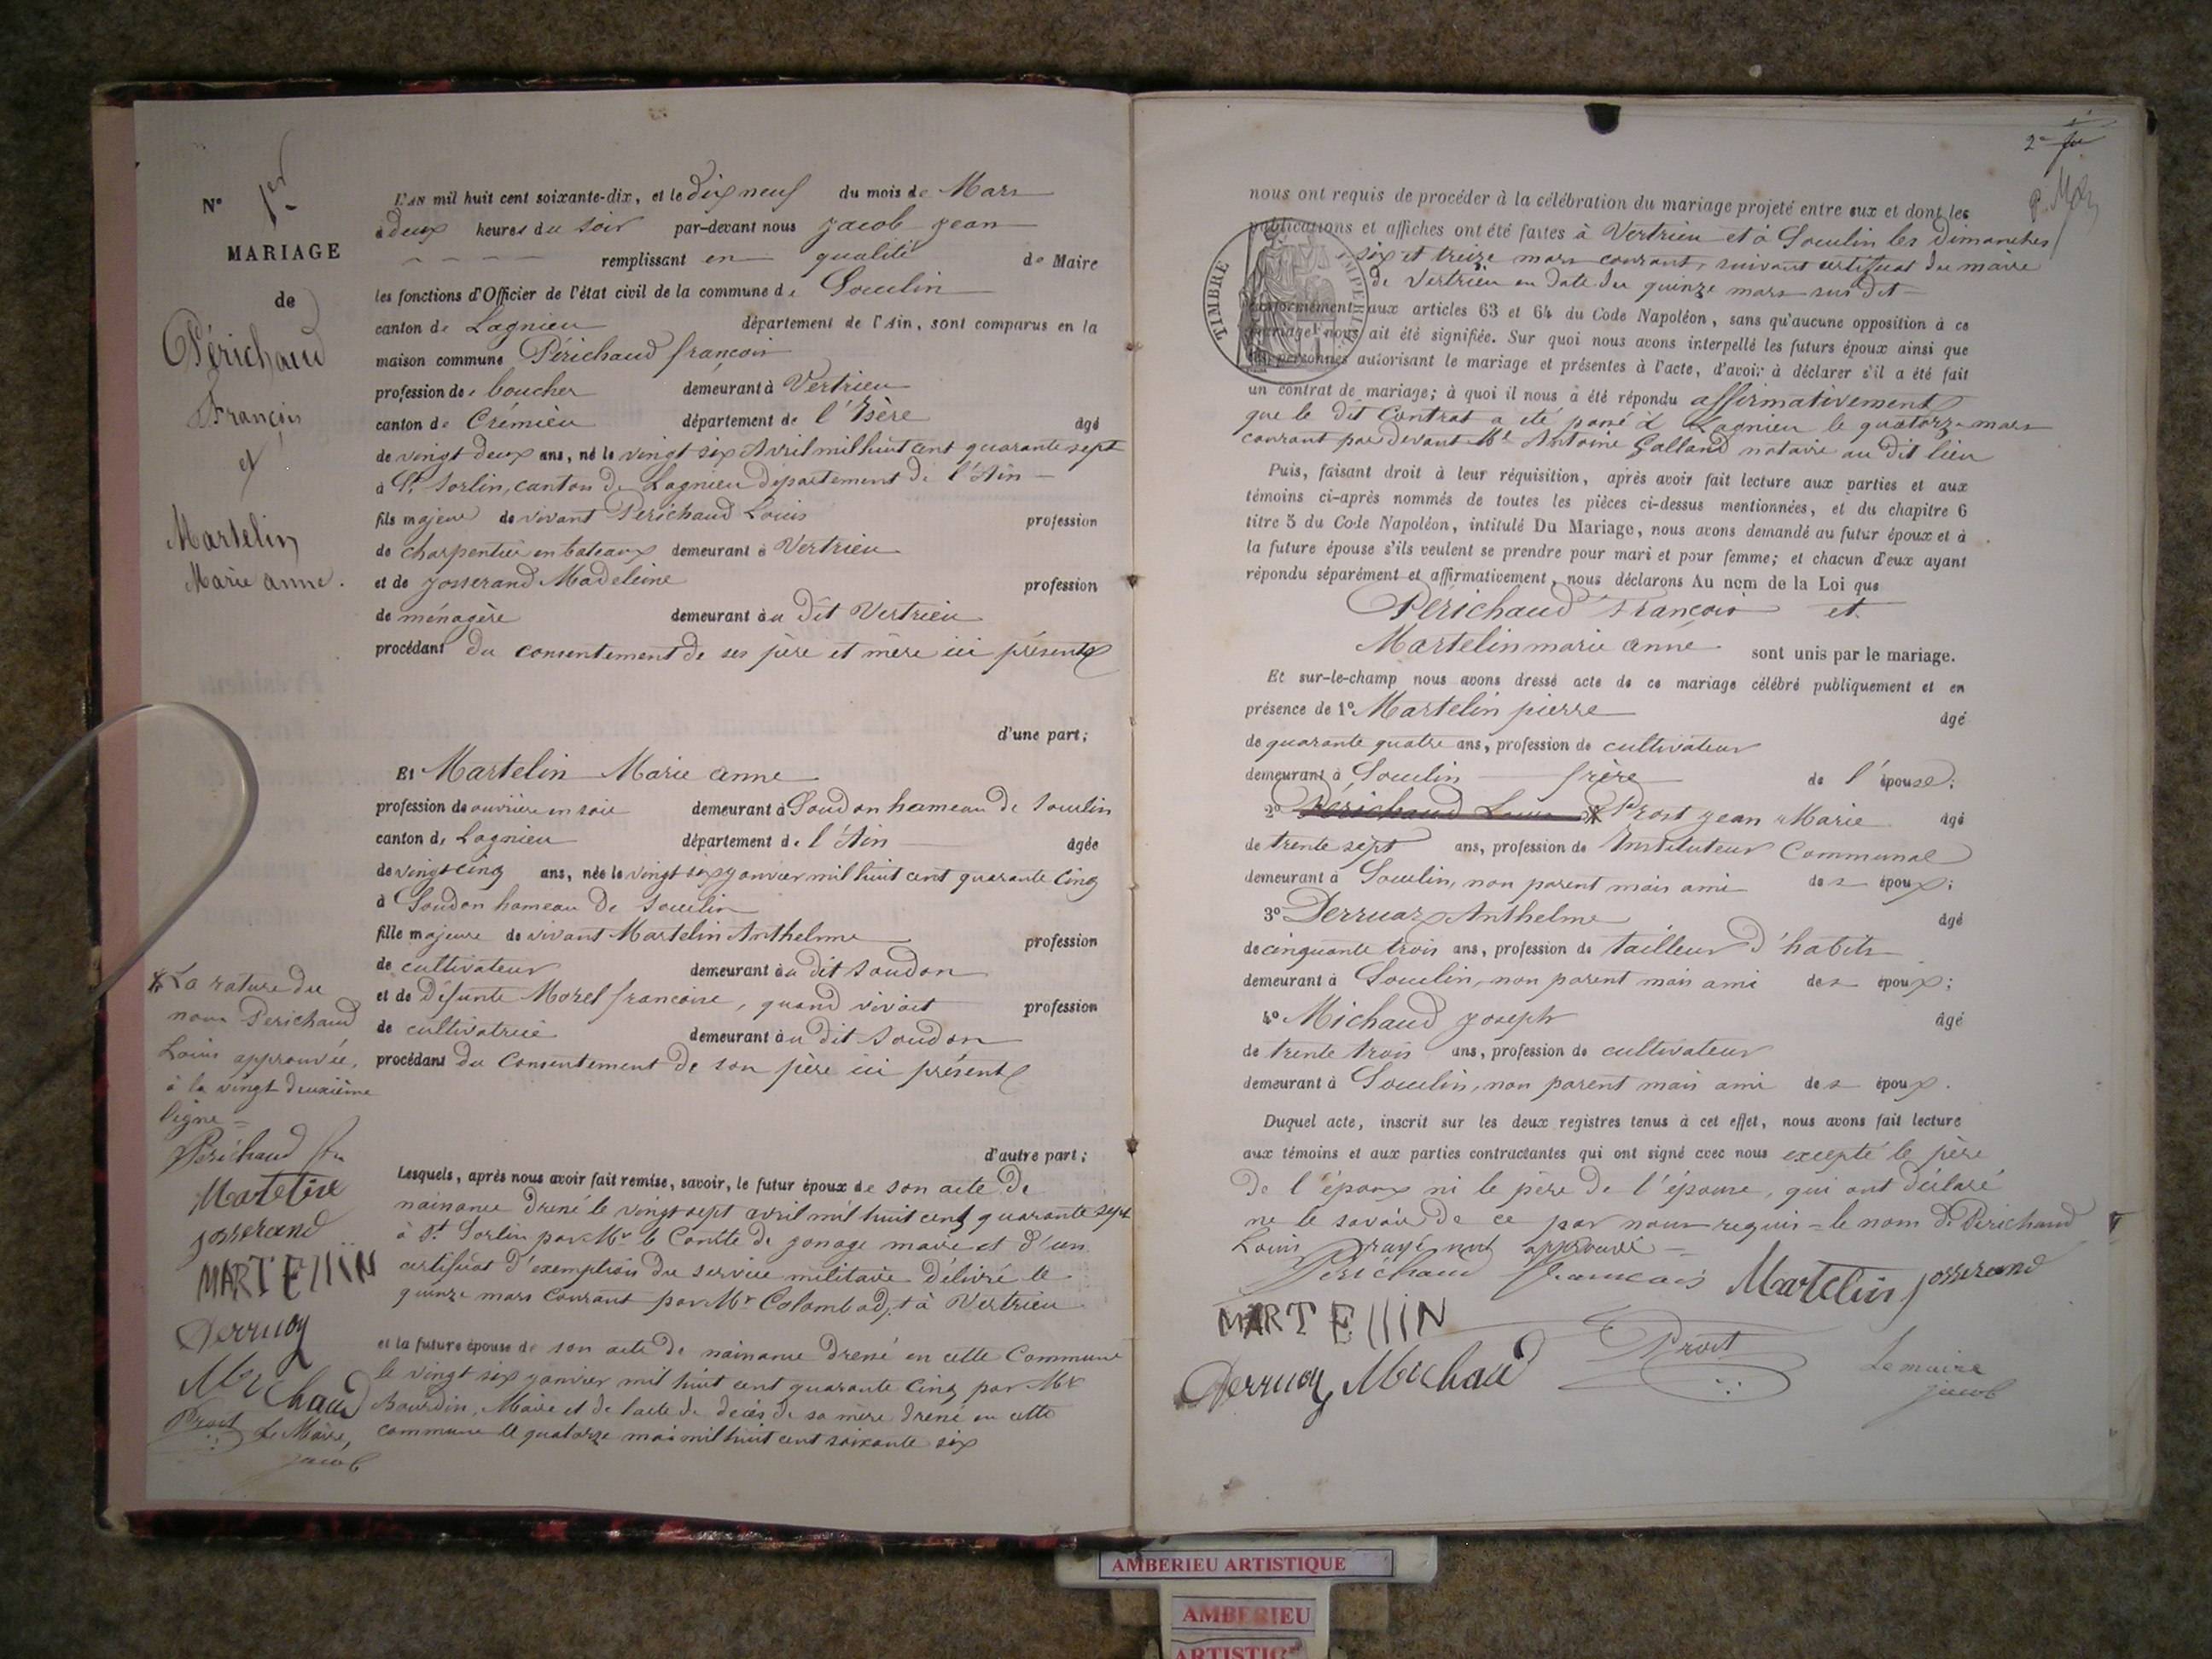 N° 1er
MARIAGE
de
Périchaud
François
et
Martelin
Marie anne.
L'AN mil huit cent soixante-dix, et le dix neuf du mois de Mars
à deux heures du soir par-devant nous Jacob Jean
remplissant en qualité de Maire
les fonctions d'Officier de l'état civil de la commune de Souclin
canton de Lagnieu département de l'Ain, sont comparus en la
maison commune Périchaud françois
profession de boucher demeurant à Vertrieu
canton de Crémieu département de l'Isère âgé
de vingt deux ans, né le vingt six Avril mil huit cent quarante sept
à St Sorlin, canton de Lagnieu département de l'Ain
fils majeur de vivant Perichaud Louis profession
de charpentier en bateaux demeurant à Vertrieu
et de Josserand Madeleine profession
de ménagère demeurant au dit Vertrieu
procédant du consentement de ses père et mère ici présents
d'une part;
Et Martelin Marie anne
profession de ouvrière en soie demeurant à Soudon hameau de Souclin
canton de Lagnieu département de l'Ain âgée
de vingt cinq ans, née le vingt six janvier mil huit cent quarante cinq
à Soudon hameau de Souclin
fille majeure de vivant Martelin Anthelme profession
de cultivateur demeurant au dit Soudon
et de défunte Morel francoise, quand vivait profession
de cultivatrice demeurant au dit Soudon
procédant du consentement de son père ici présent
d'autre part;
Lesquels, après nous avoir fait remise, savoir, le futur époux de son acte de
naissance dressé le vingt sept avril mil huit cent quarante sept
à St Sorlin par Mr le Comte de Jonage maire et d'un
certificat d'exemption du service militaire délivré le
quinze mars courant par Mr Colombad, à Vertrieu
et la future épouse de son acte de naissance dressé en cette Commune
le vingt six janvier mil huit cent quarante cinq par Mr
Bourdin, Maire et de l'acte de decès de sa mère dressé en cette
commune le quatorze mai mil huit cent soixante six
* La rature du
nom Perichaud
Louis approuvée,
à la vingt deuxième
ligne =
Périchaud fr
Martelin
josserand
MARTEllIN
Derruaz
Michaud
Prost Le Maire,
Jacob
2e
nous ont requis de procéder à la célébration du mariage projeté entre eux et dont les
publications et affiches ont été faites à Vertrieu et à Souclin les dimanches
six et treize mars courant, suivant certificat du maire
de Vertrieu en date du quinze mars sus dit
TIMBRE IMPERIAL
conformément aux articles 63 et 64 du Code Napoléon, sans qu'aucune opposition à ce
mariage nous ait été signifiée. Sur quoi nous avons interpellé les futurs époux ainsi que
les personnes autorisant le mariage et présentes à l'acte, d'avoir à déclarer s'il a été fait
un contrat de mariage; à quoi il nous a été répondu affirmativement
que le dit Contrat a été passé à Lagnieu le quatorze mars
courant par devant Me Antoine Galland notaire au dit lieu
Puis, faisant droit à leur réquisition, après avoir fait lecture aux parties et aux
témoins ci-après nommés de toutes les pièces ci-dessus mentionnées, et du chapitre 6
titre 5 du Code Napoléon, intitulé Du Mariage, nous avons demandé au futur époux et à
la future épouse s'ils veulent se prendre pour mari et pour femme; et chacun d'eux ayant
répondu séparément et affirmativement, nous déclarons Au nom de la Loi que
Périchaud François et
Martelin marie anne sont unis par le mariage.
Et sur-le-champ nous avons dressé acte de ce mariage célébré publiquement et en
présence de 1° Martelin pierre âgé
de quarante quatre ans, profession de cultivateur
demeurant à Souclin frère de l'épouse;
2° Périchaud Louis * Prost Jean Marie âgé
de trente sept ans, profession de Instituteur Communal
demeurant à Souclin, non parent mais ami des époux;
3° Derruaz Anthelme âgé
de cinquante trois ans, profession de tailleur d'habits
demeurant à Souclin, non parent mais ami des époux;
4° Michaud Joseph âgé
de trente trois ans, profession de cultivateur
demeurant à Souclin, non parent mais ami des époux.
Duquel acte, inscrit sur les deux registres tenus à cet effet, nous avons fait lecture
aux témoins et aux parties contractantes qui ont signé avec nous excepté le père
de l'époux ni le père de l'épouse, qui ont déclaré
ne le savoir de ce par nous requis = le nom de Périchaud
Louis rayé nul approuvé =
Périchaud francais Martelin josserand
MARTEllIN
Derruaz Michaud Prost Le maire
jacob
AMBERIEU ARTISTIQUE
AMBERIEU
ARTISTIQ